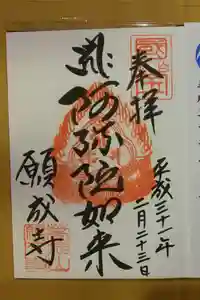 奉拝
平成三十一年
二月二十三日
阿弥陀如来
願成寺